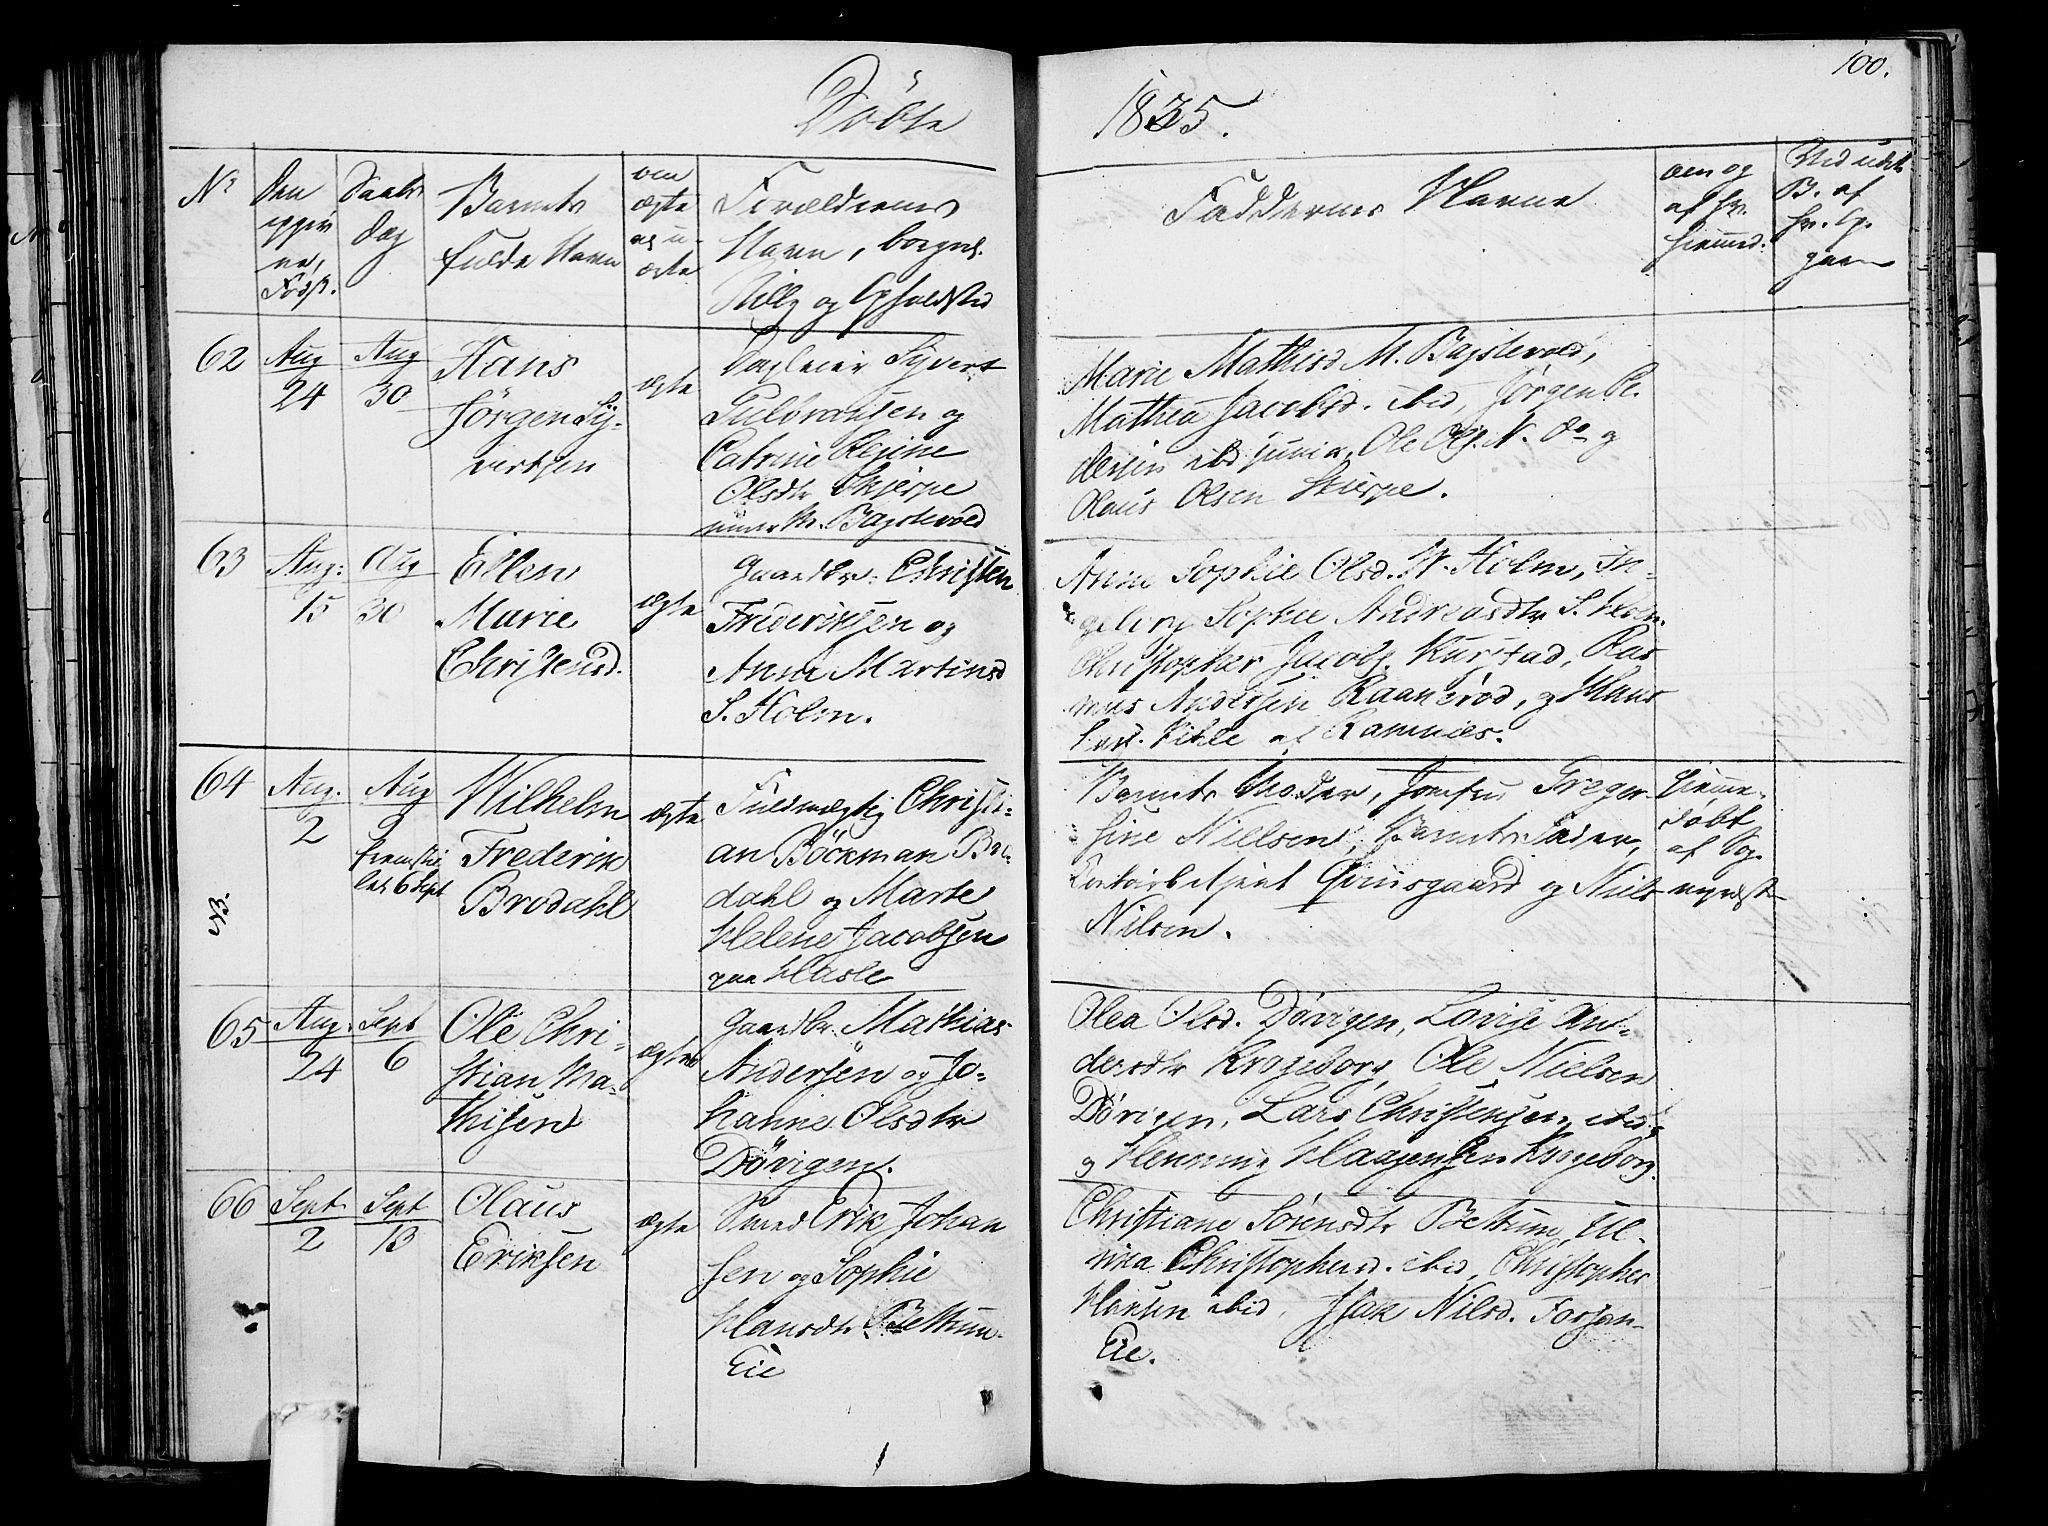 100.
Döbte
1835.
No
Den
opgiv
ne
Fødsl.
Daabs
dag
Barnets
fulde Navn
om
ægte
og u-
ægte
Forældrenes
Navn, borgerl.
Stilling og Opholdsted
Faddernes Navne
om og
af hv.
hiemmed.
62
Aug
24
Aug
30
Hans
Jörgen Sy-
vertsen
ægte
Dagleier Syvert
Gulbransen og
Catrine Regine
Olsdtr Skjerpe
under M. Bagstevold
Marie Mathisd M. Bagstevold,
Mathea Jacobsd. ibid, Jørgen Pe-
dersen ibd junior, Ole Ols. N. do og
Olaus Olsen Skierpe.
63
Aug:
15
Aug
30
Ellen
Marie
Christensd.
ægte
Gaardbr. Christen
Frederiksen og
Anne Martinsd
S. Holm.
Anne Sophie Olsd. W. Holm, In-
geborg Sophie Andreasdtr S. Holm
Christopher Jacobs. Kurstad, Ras
mus Andersen Raanerød, og Hans
af Ramnæs.
64
Aug.
2
Aug
9
fremstil
let 6 Sept
Wilhelm
Frederik
Brodahl
ægte
Fuldmægtig Christi-
an Böckman Bro-
dahl og Marte
Helene Jacobsen
paa Hasle
Barnets Moder, Jomfru Greger-
sine Nielsen, Barnets Fader,
Contoirbetjent Qvinsgaard og Niels
Nilsen.
hiemme-
døbt
af Sog-
nepræst
65
Aug.
24
Sept
6
Ole Chri-
stian Ma-
thisen
ægte
Gaardbr. Mathias
Andersen og Jo-
hanne Olsdtr
Dövigen.
Olea Olsd. Døvigen, Lovise An-
dersdtr Krogeborg, Ole Nielsen
Dövigen, Lars Christensen ibid
og Henning Haagensen Krogeborg.
66
Sept
2
Sept
13
Olaus
Eriksen
ægte
Smed Erik Johan
sen og Sophie
Hansdtr Bettum-
Eie
Christiane Sørensdtr Bettum, Ul-
rikka Christophersd. ibid, Christopher
Hansen ibid, Isak Nilsd. Fossan-
Eie.